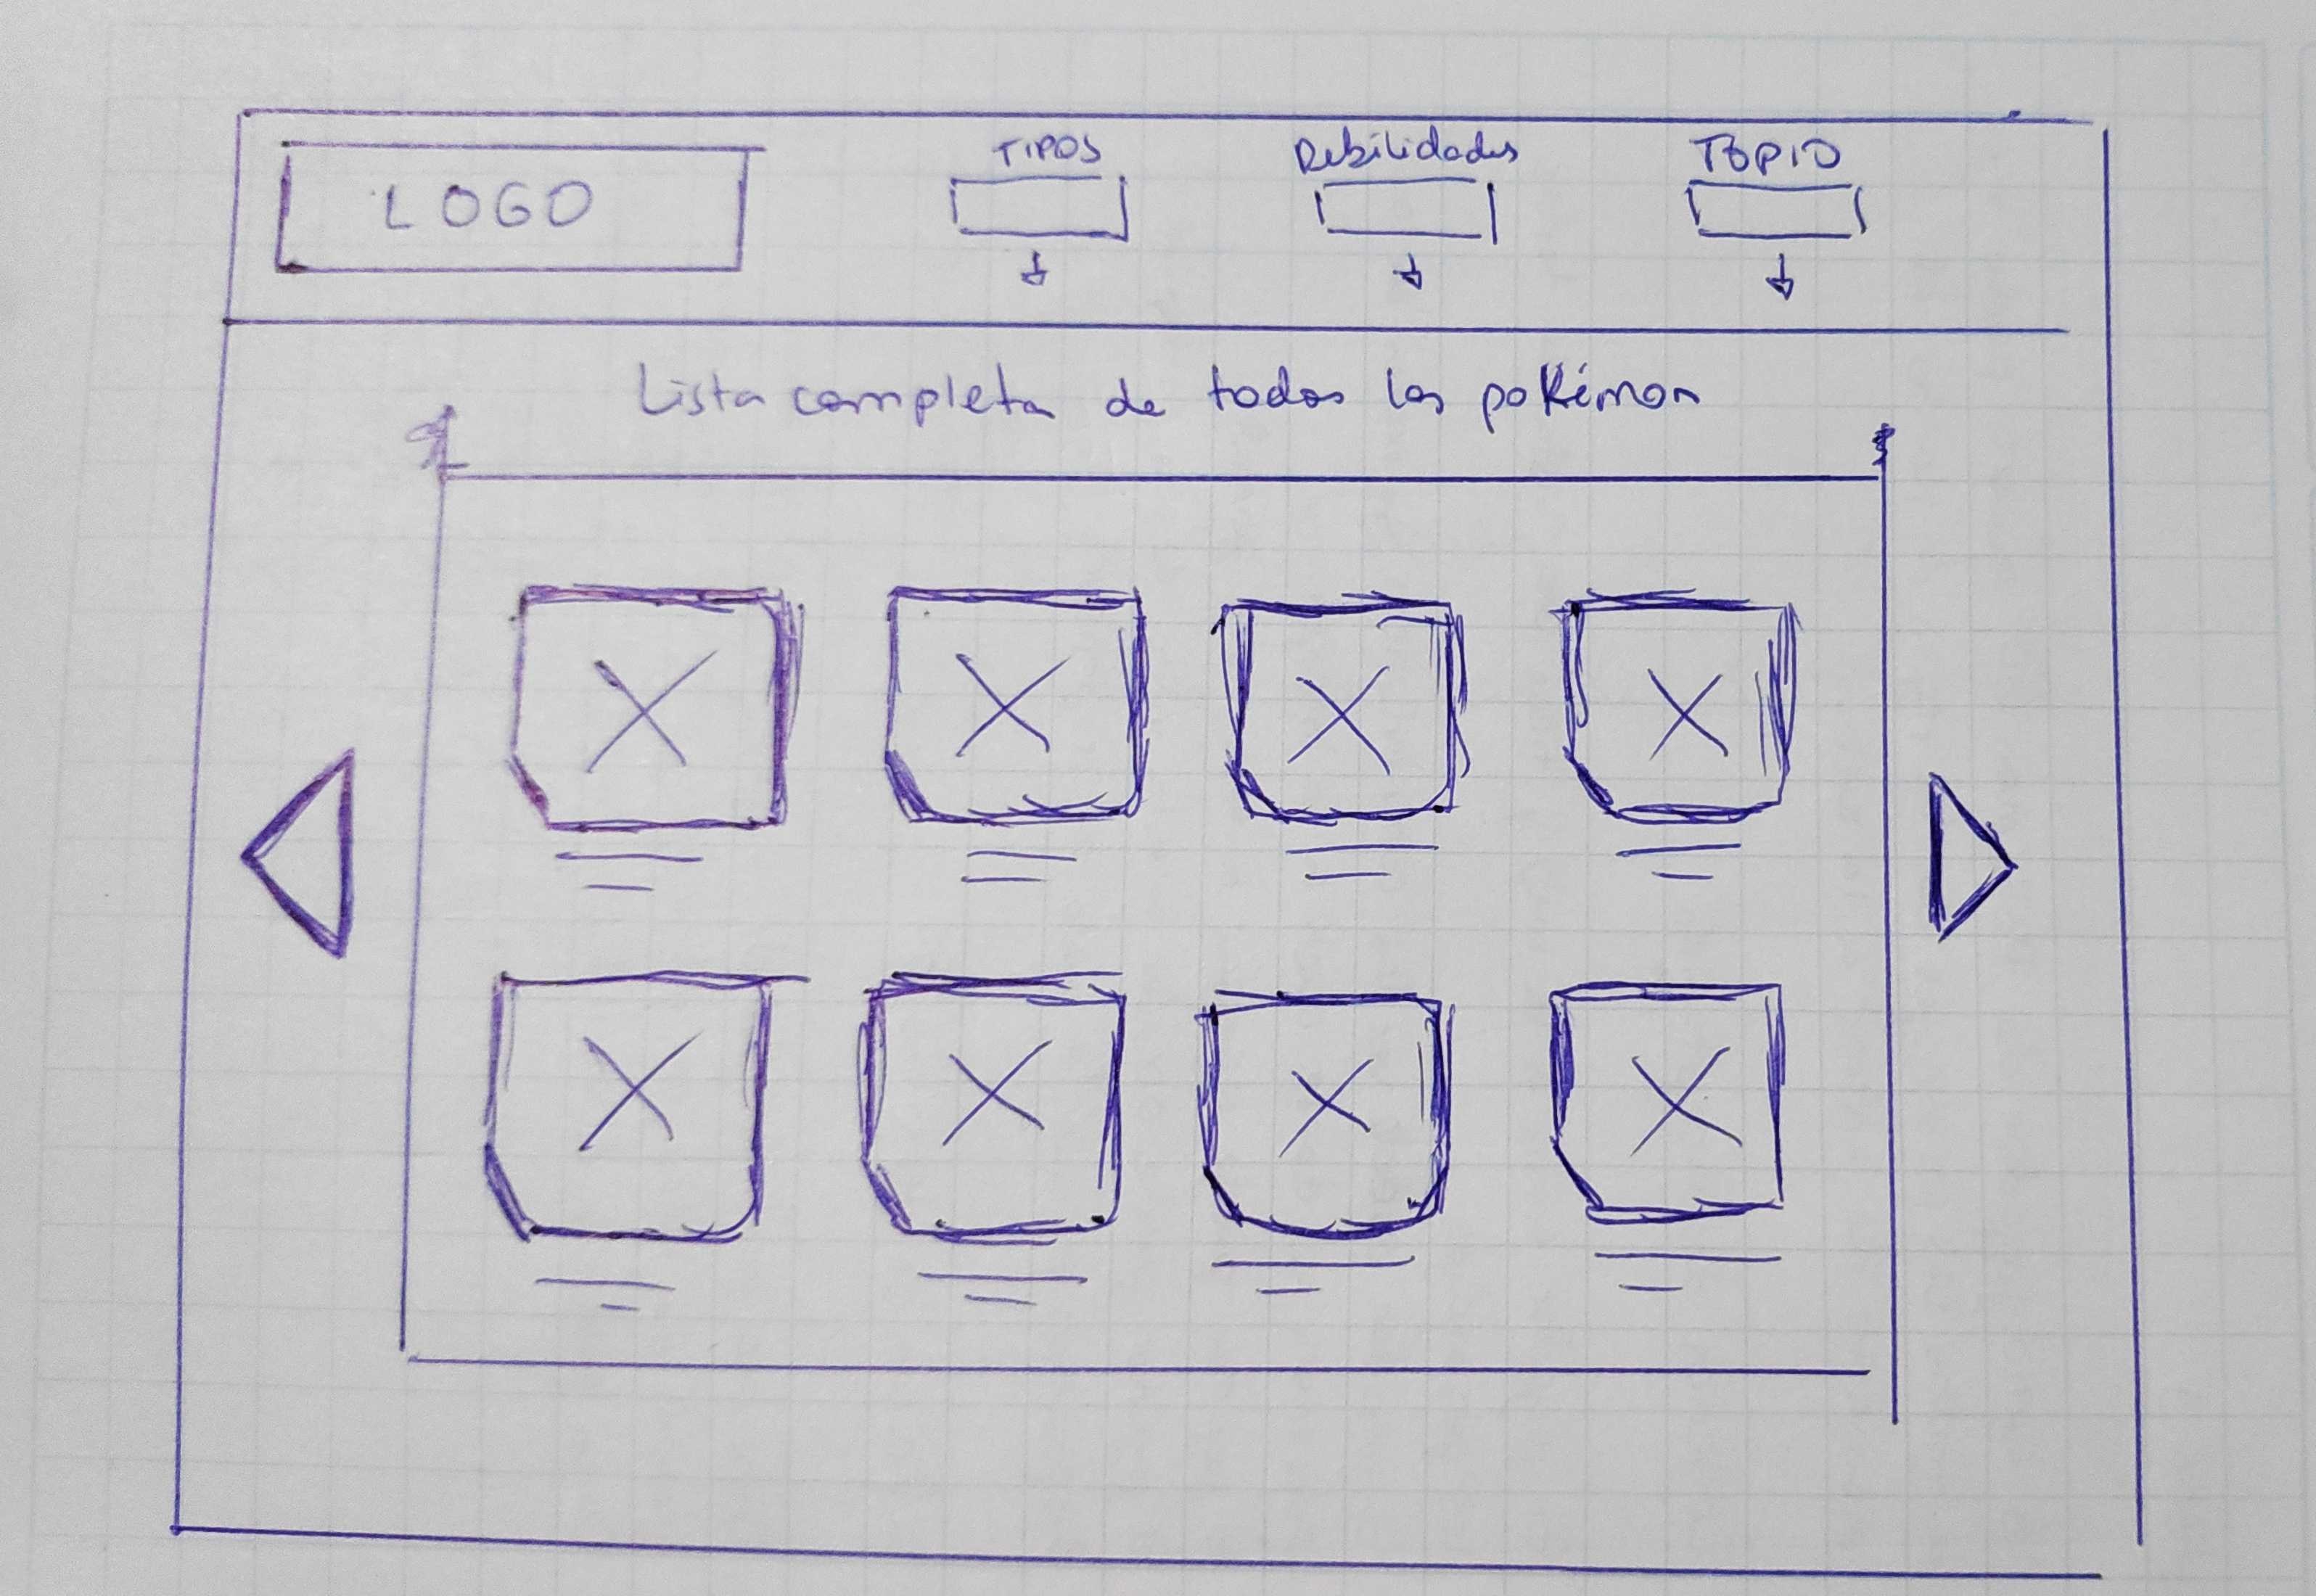 LOGO
TIPOS
Debilidades
TOP10
Lista completa de todos los pokémon